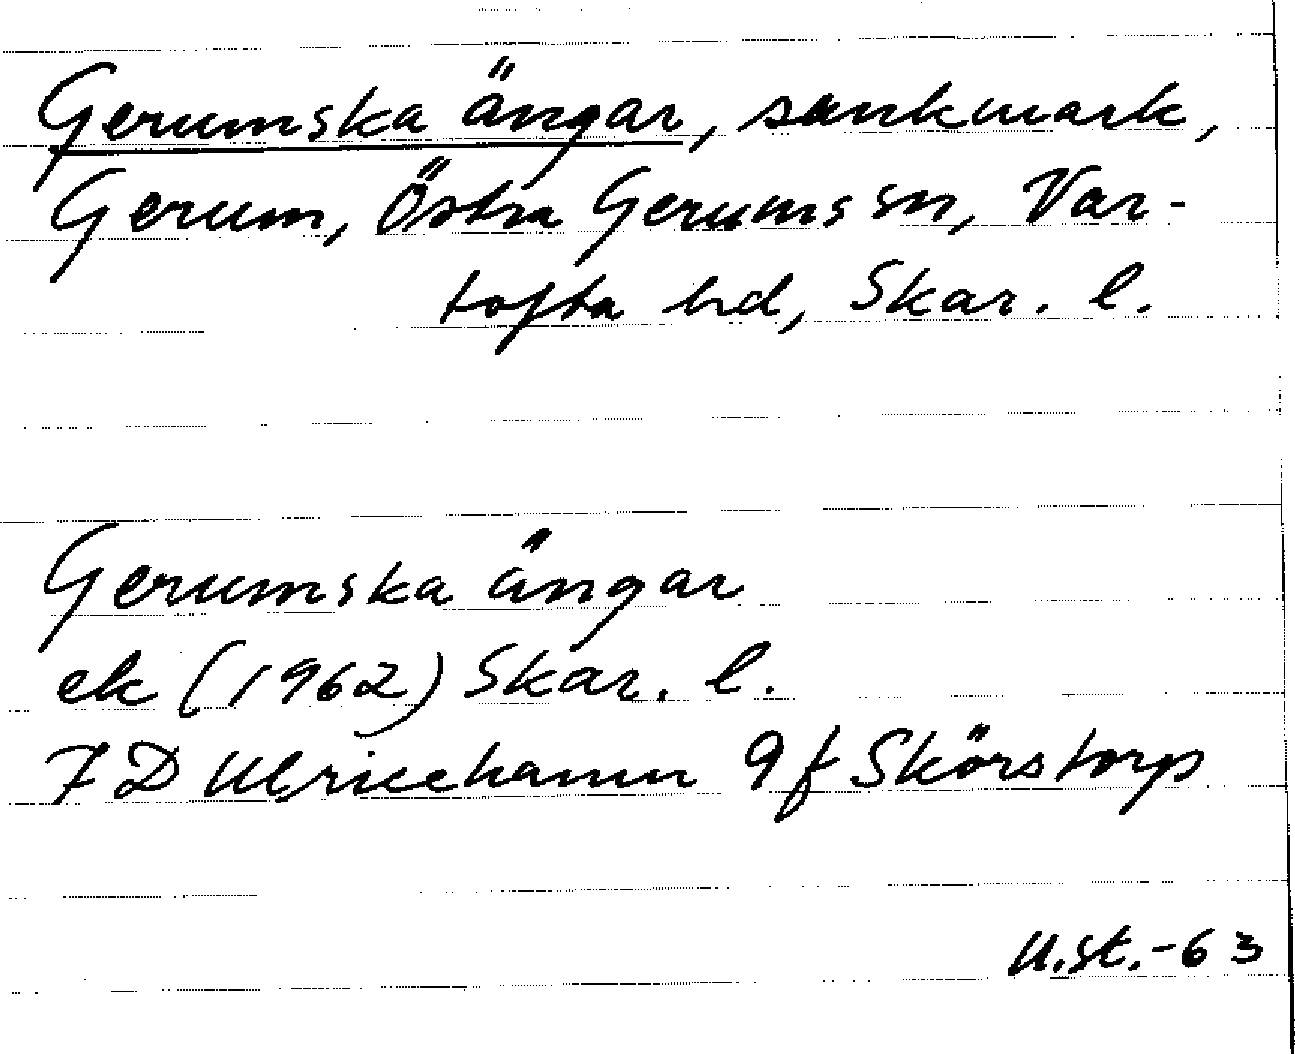 Gerumska ängar, sankmark,
Gerum, Östra Gerums sn, Var-
tofta hd, Skar. l.
Gerumska ängar
ek (1962) Skar. l.
7 D Ulricehamn 9 f Skörstorp
U.St.-63